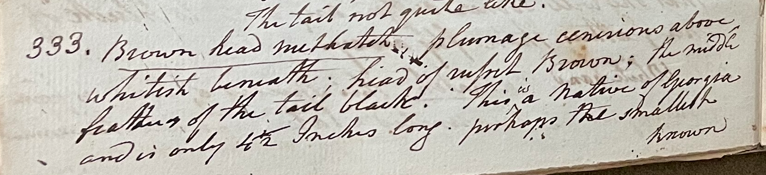 The tail not quite like.
333. Brown head nuthatch, plumage cenerious above,
whitish beneath; head of rufset Brown; the middle
feathers of the tail black. This is a native of Georgia
and is only 4½ Inches long. perhaps the smallest
known